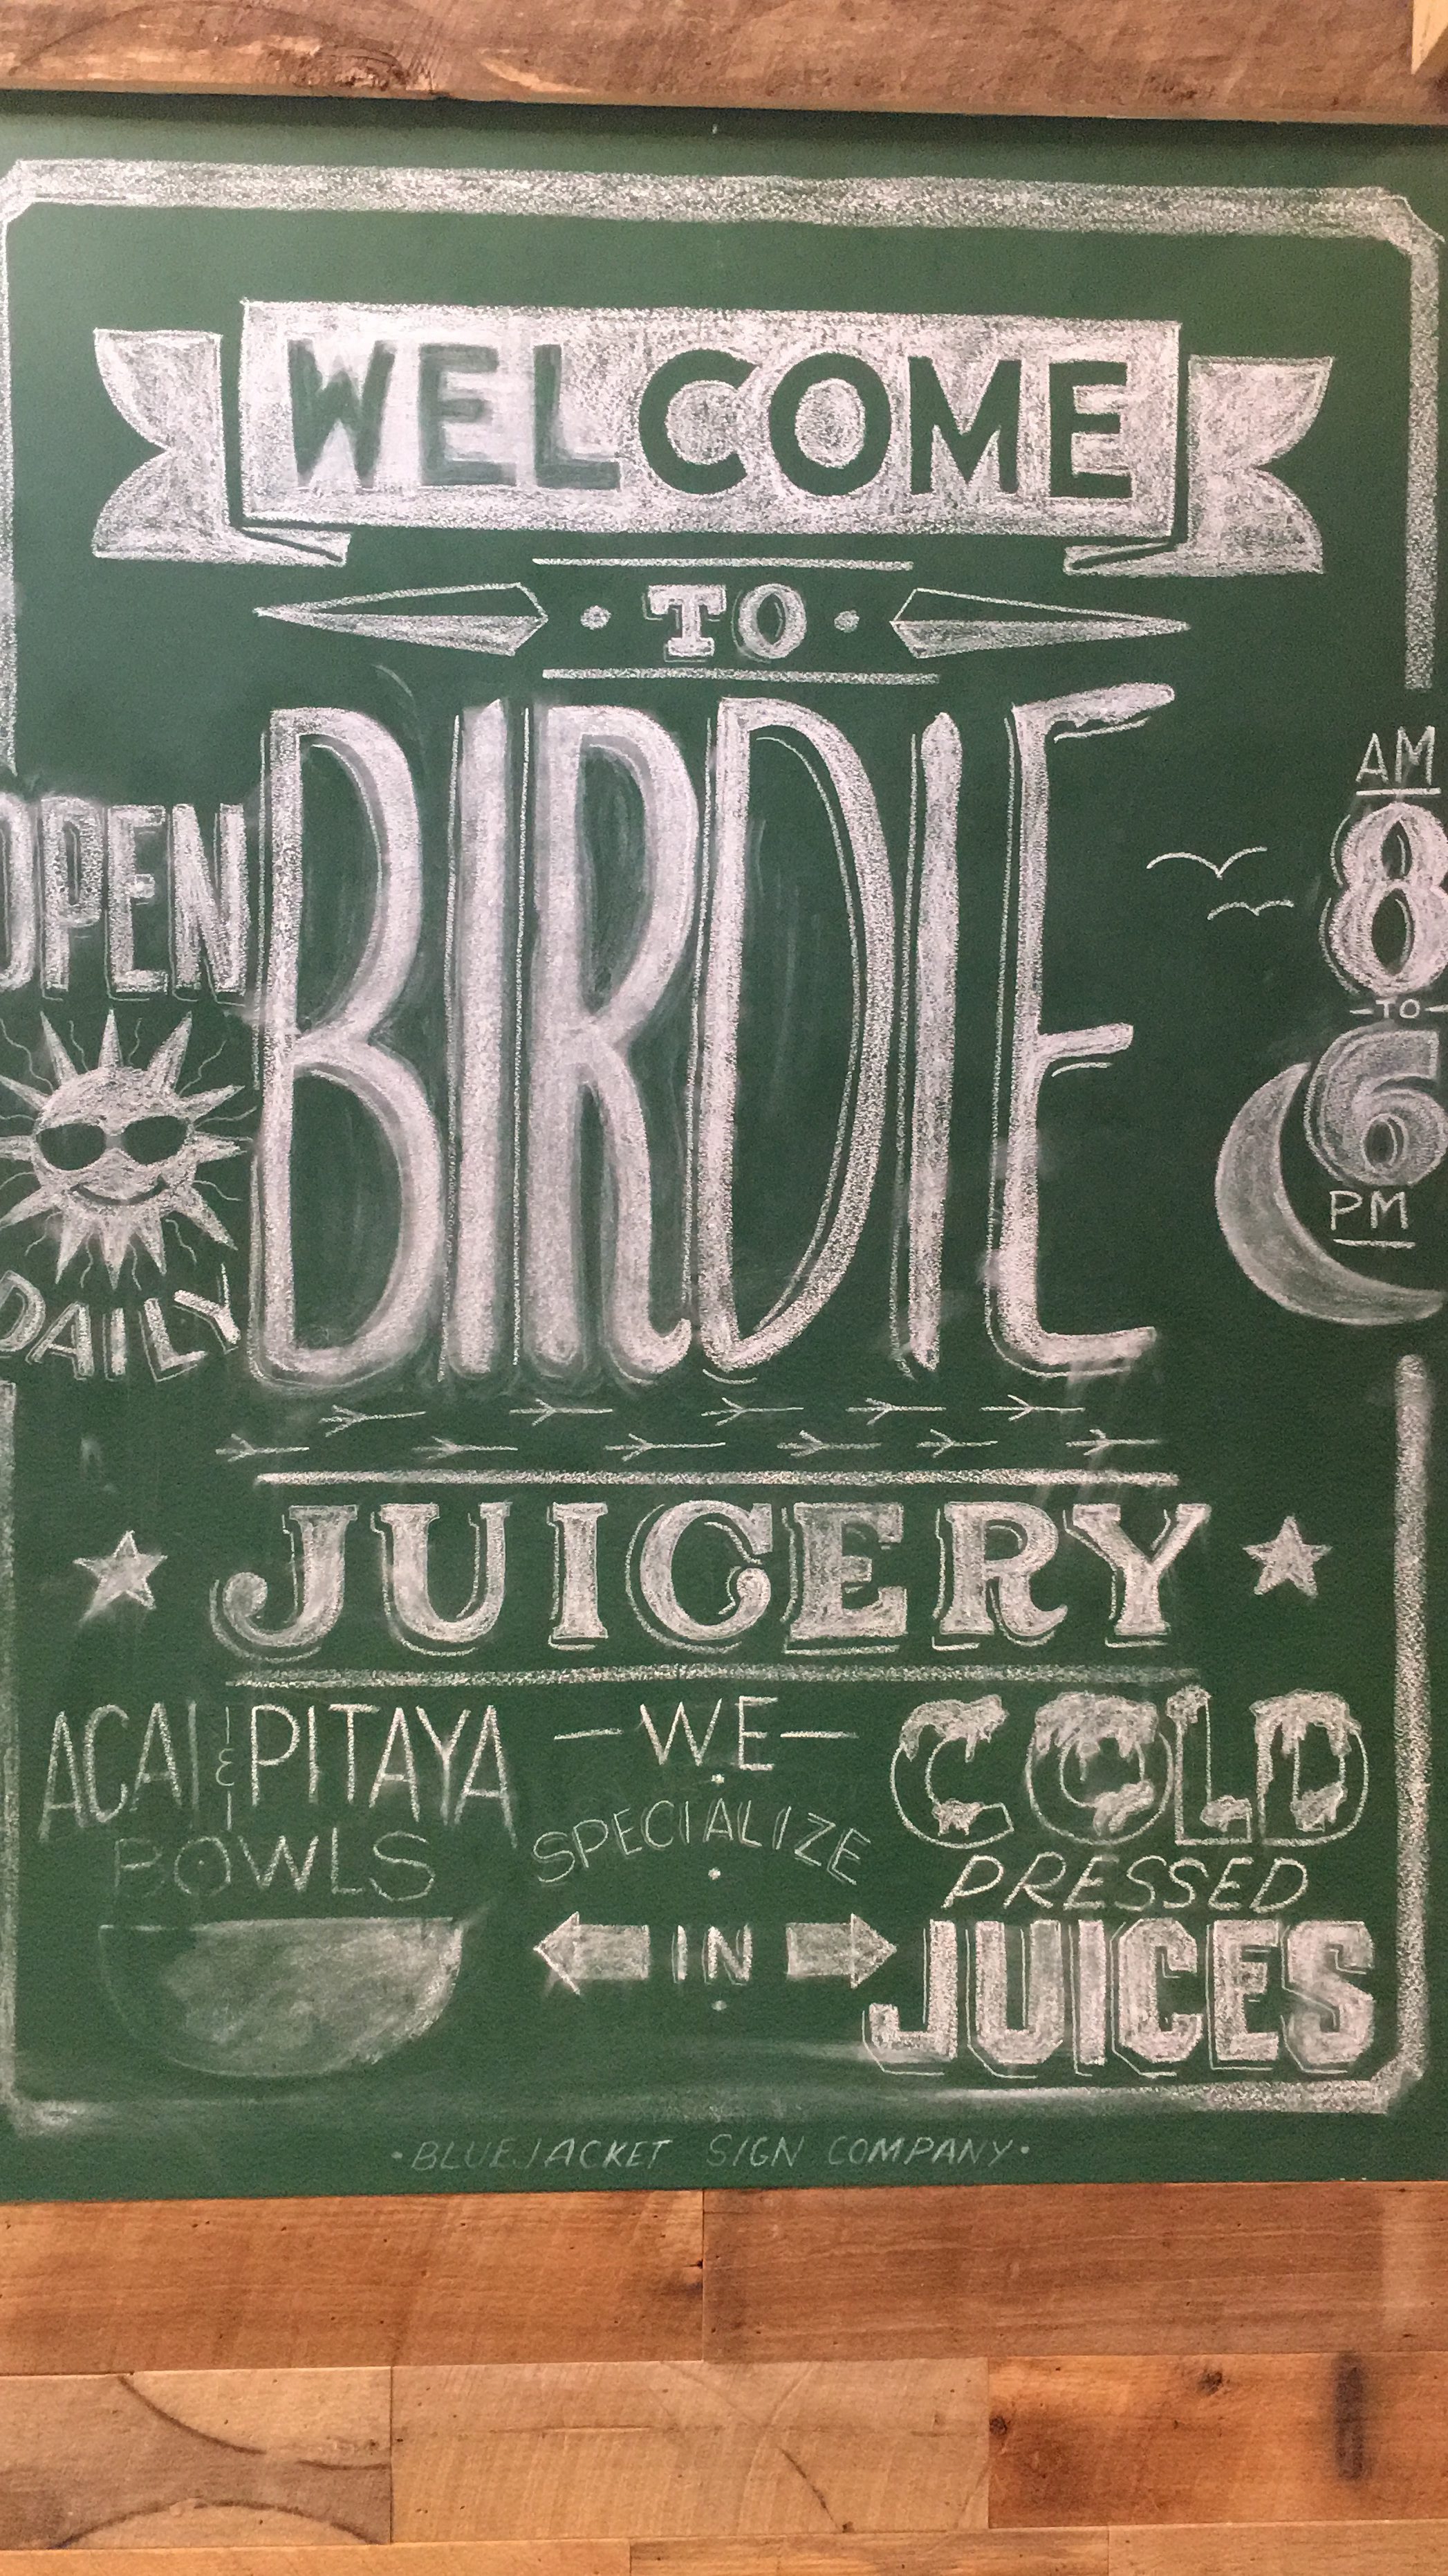 WELCOME
TO
BIRDIE
OPEN
DAILY
AM
8
TO
6
PM
JUICERY
ACAI & PITAYA
BOWLS
WE
SPECIALIZE
IN
COLD
PRESSED
JUICES
BLUEJACKET SIGN COMPANY